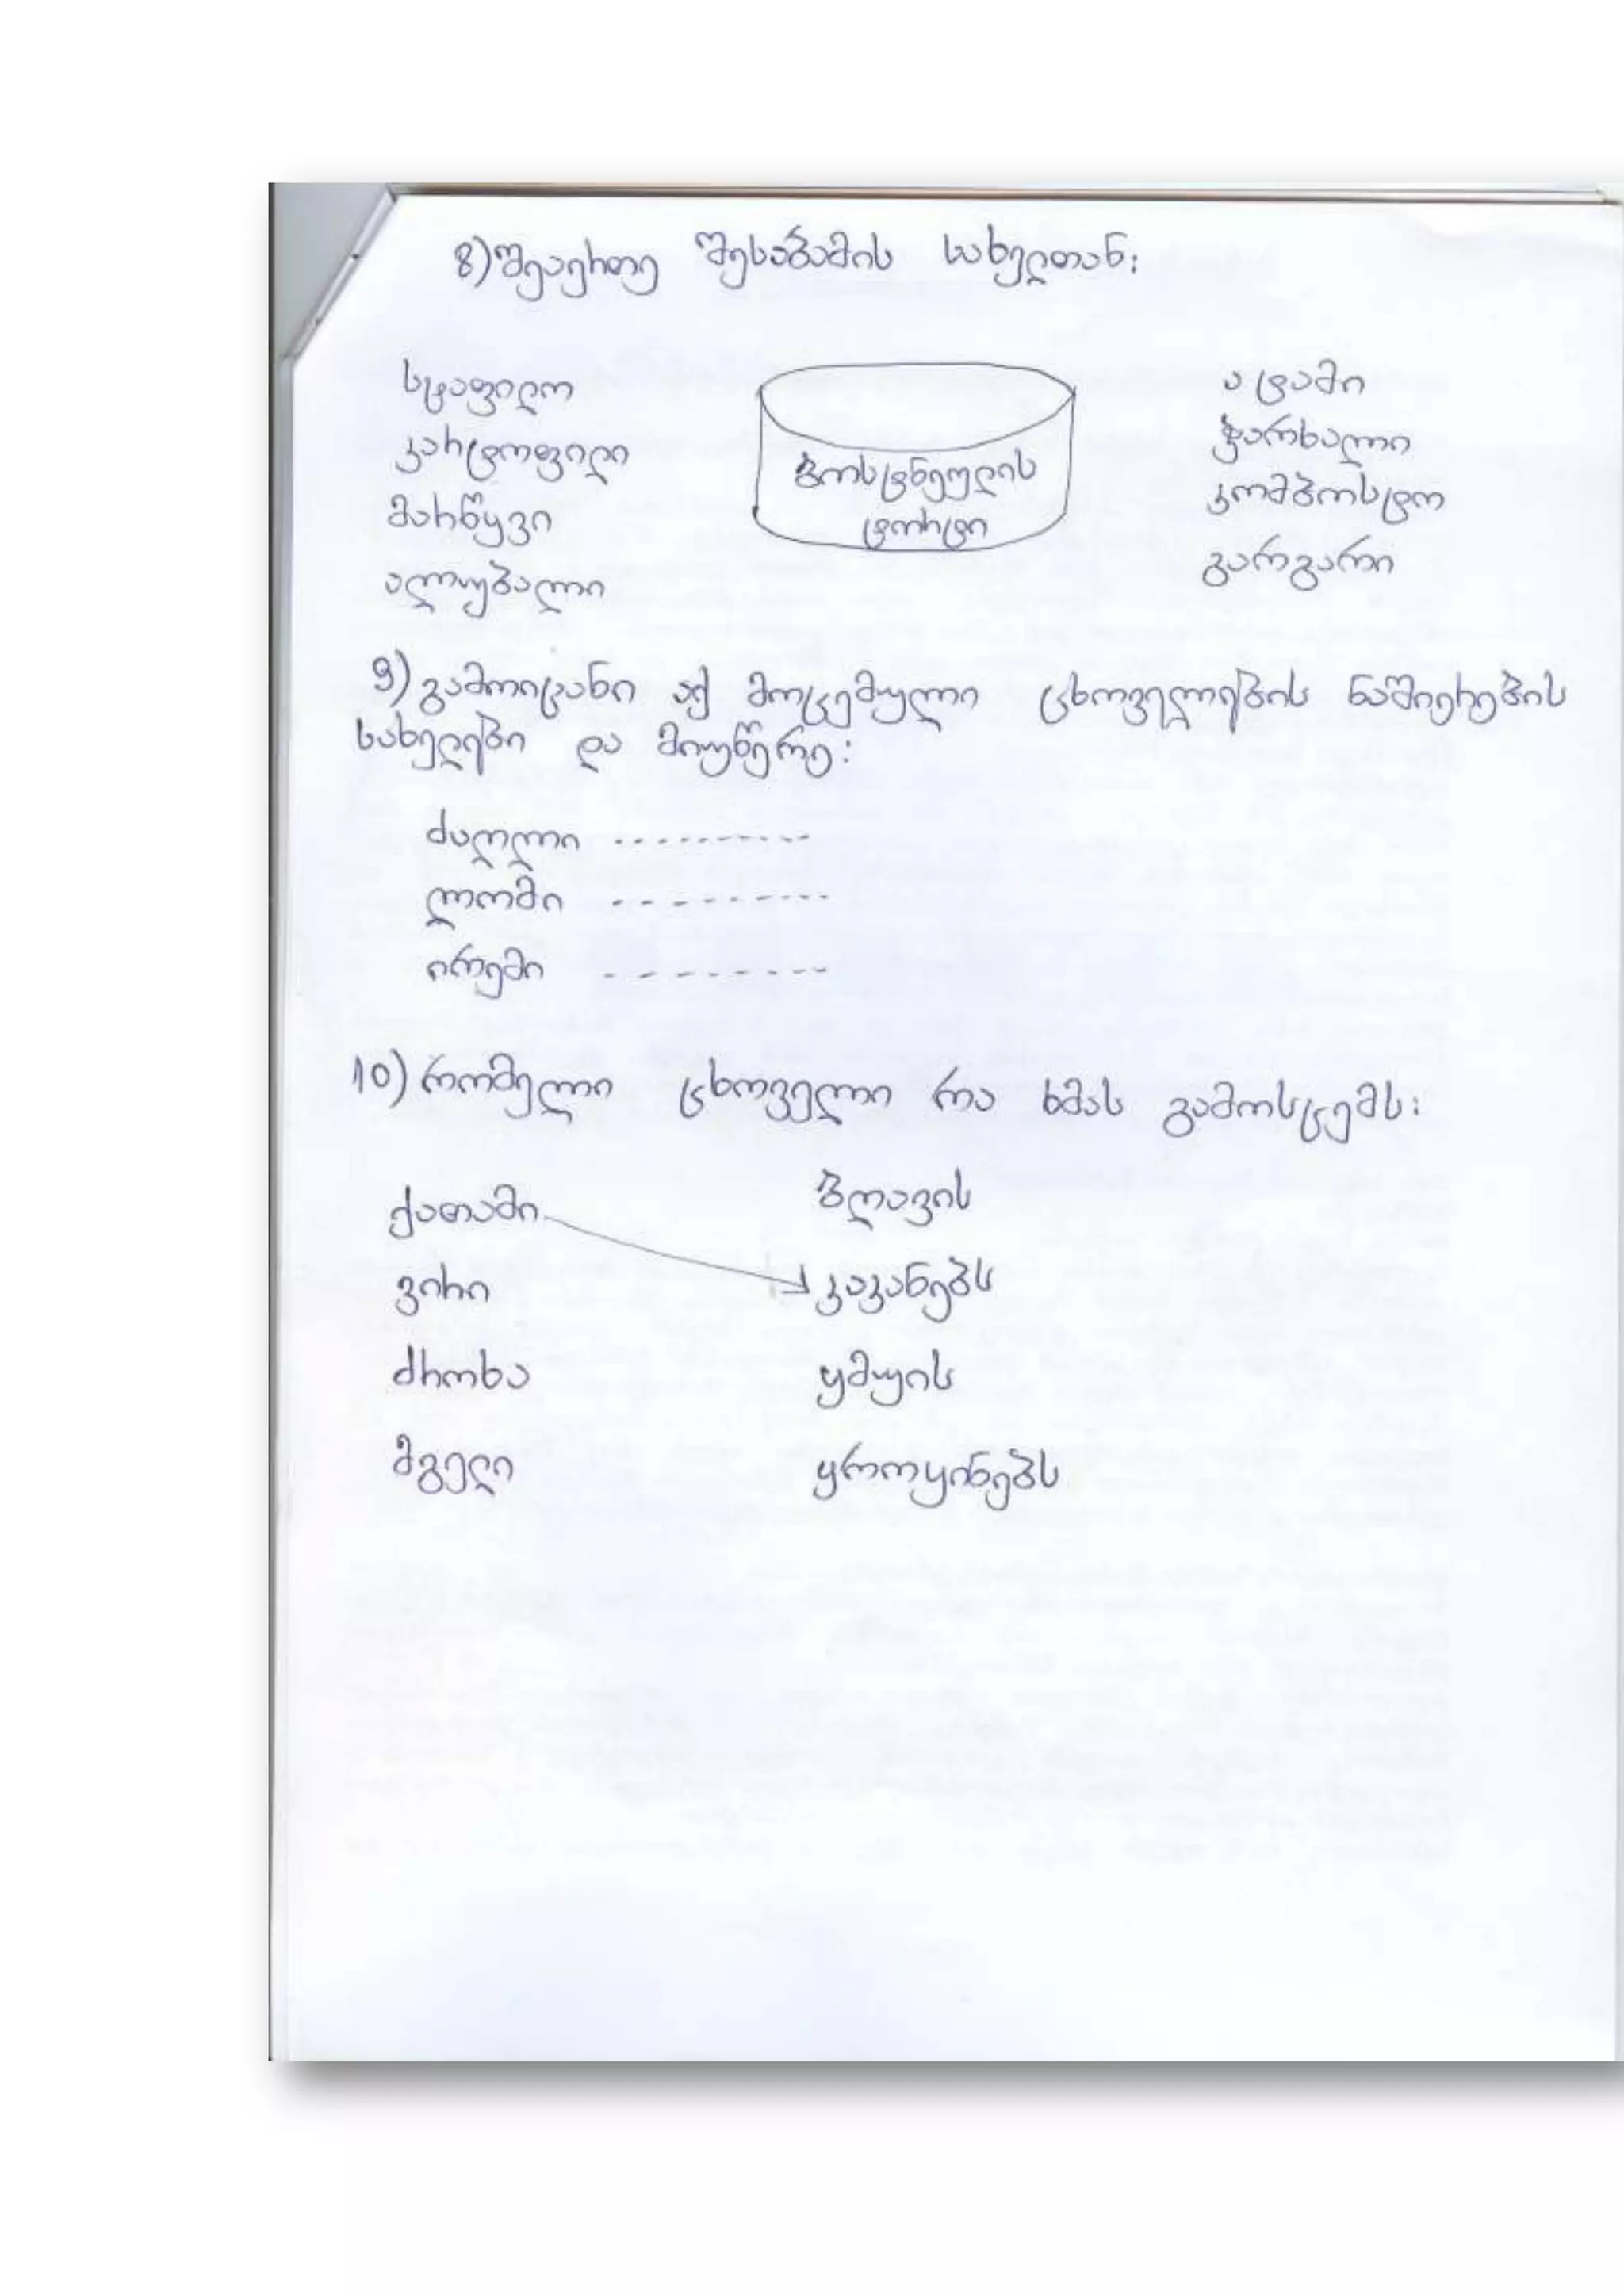 8) შეაერთე შესაბამის სახელთან:
სტაფილო
კარტოფილი
მარწყვი
ალუბალი
ბოსტნეულის
ტორტი
ატამი
ჭარხალი
კომბოსტო
გარგარი
9) გამოიცანი აქ მოცემული ცხოველების ნაშიერების
სახელები და მიუწერე:
ძაღლი ----------
ლომი ----------
ირემი ----------
10) რომელი ცხოველი რა ხმას გამოსცემს:
ქათამი ბღავის
ვირი კაკანებს
ძროხა ყმუის
მგელი ყროყინებს